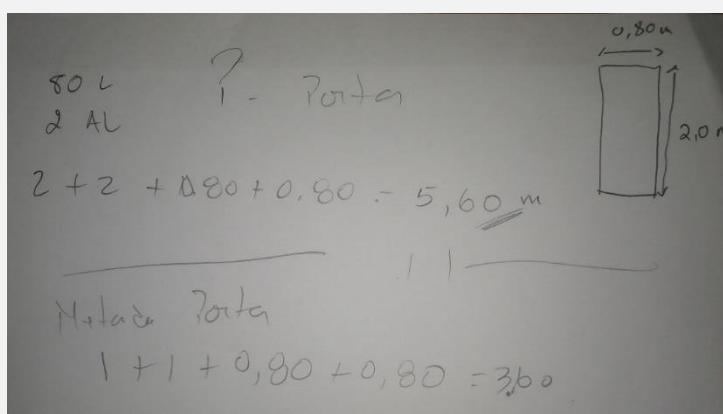 0,80m
80 L
? - Porta
2 AL
2,0 m
2 + 2 + 0.80 + 0.80 = 5,60 m
Metade Porta
1 + 1 + 0,80 + 0,80 = 3,60